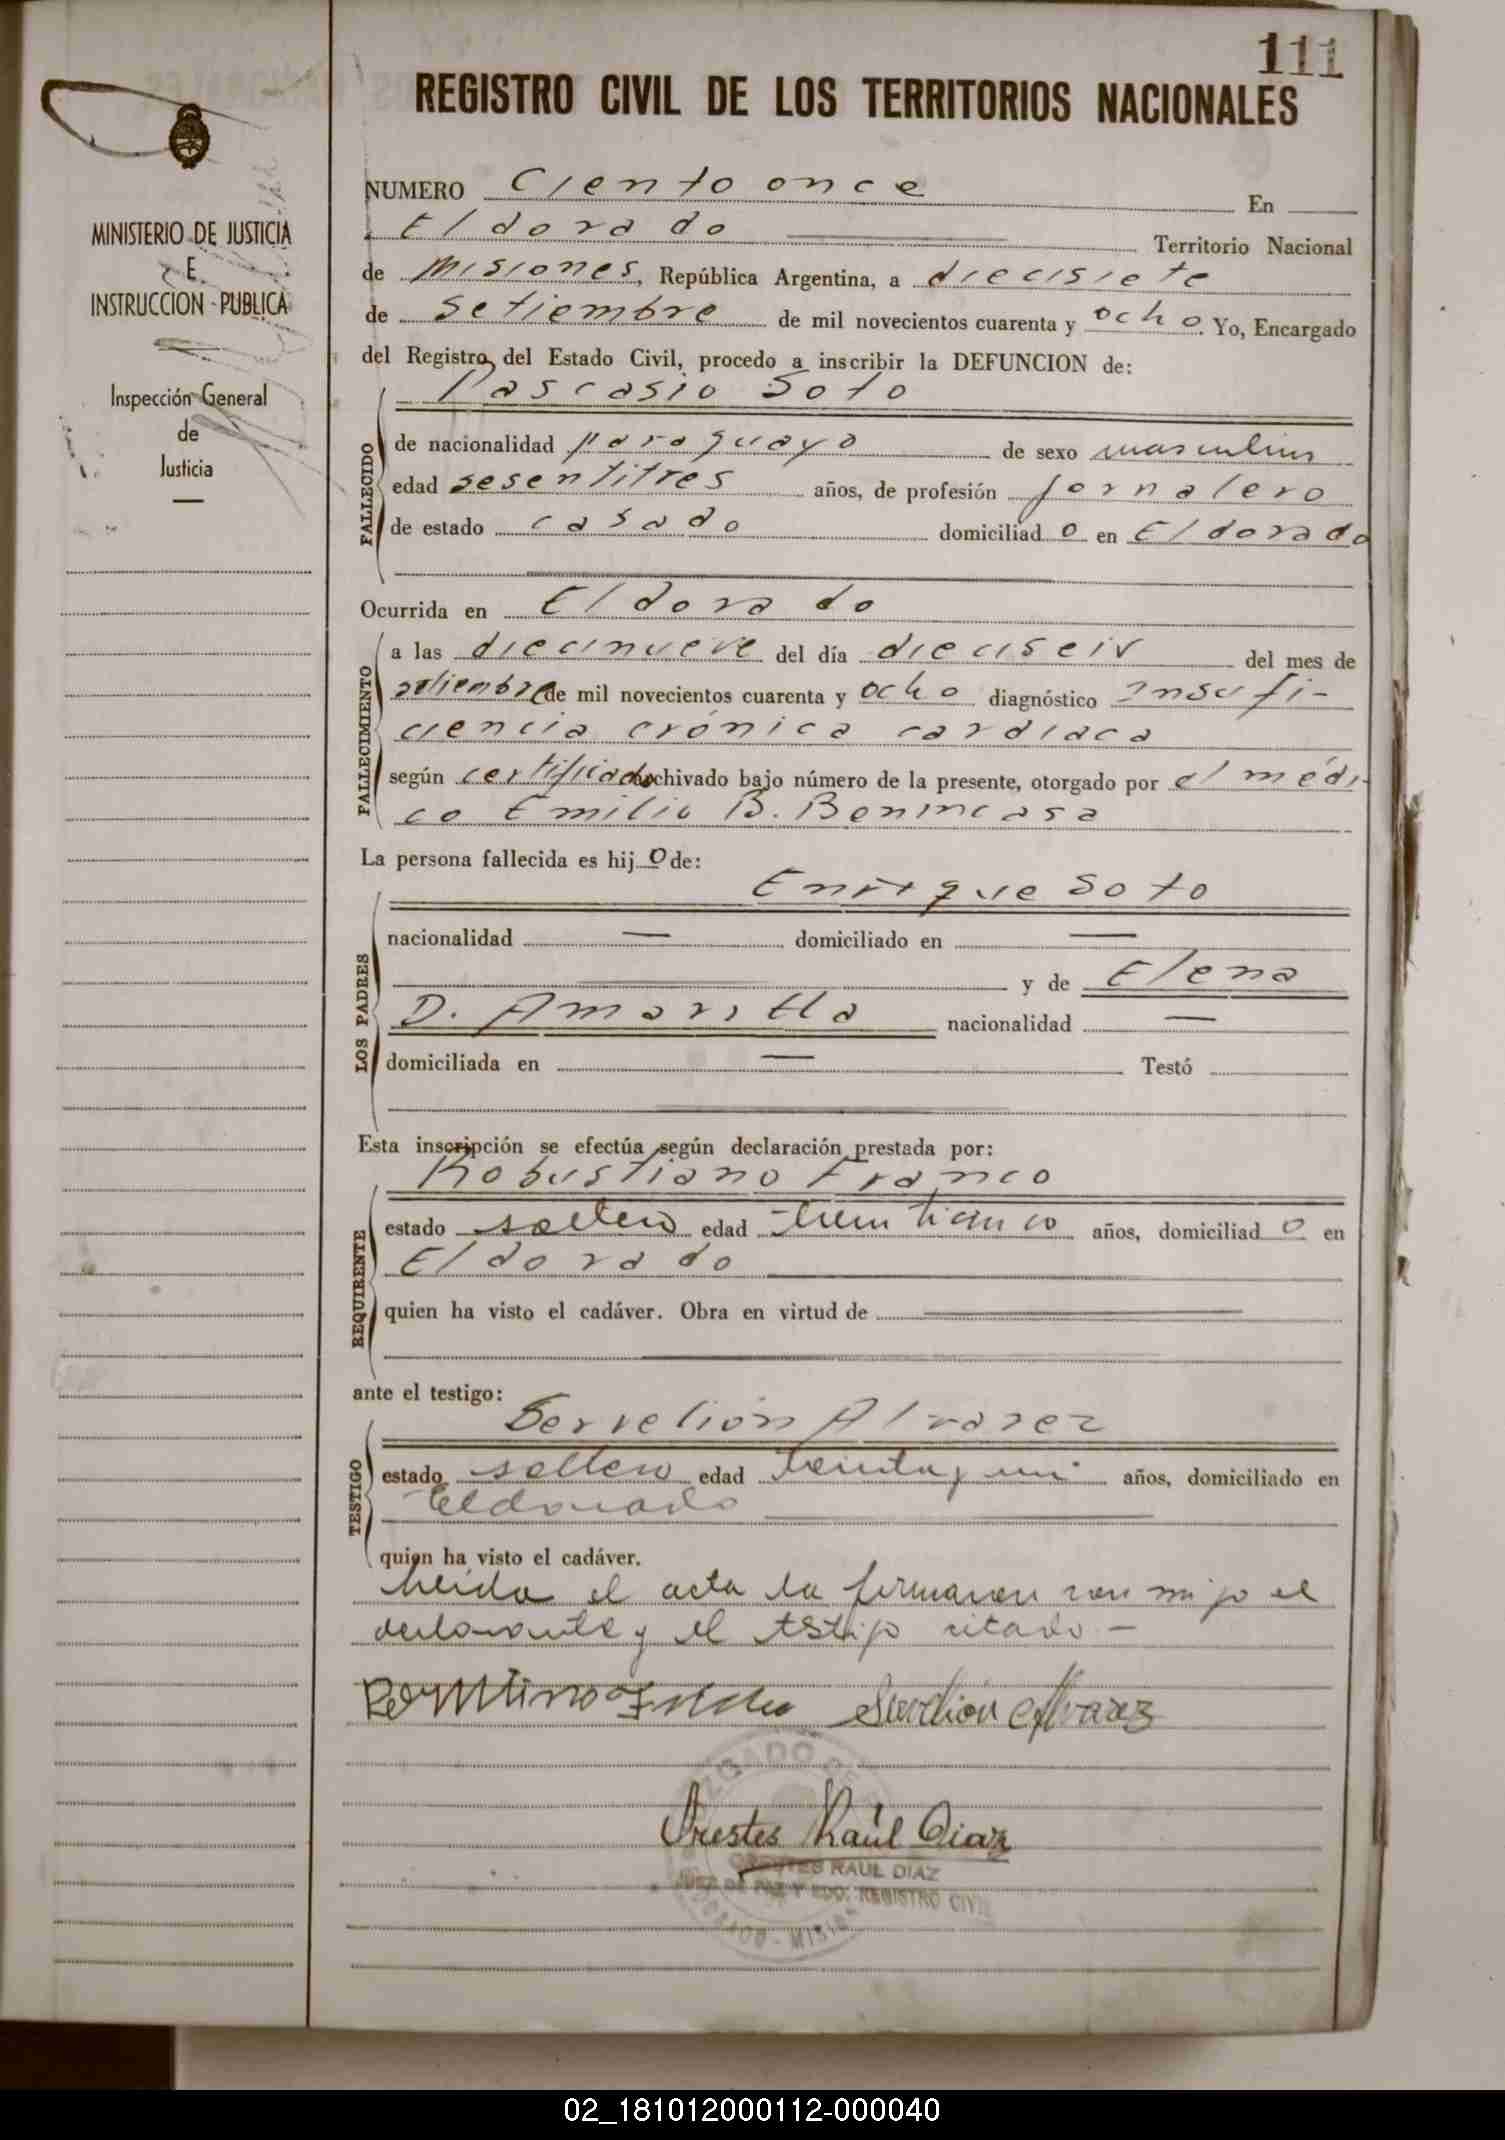 111
REGISTRO CIVIL DE LOS TERRITORIOS NACIONALES
MINISTERIO DE JUSTICIA
E
INSTRUCCION PUBLICA
Inspección General
de
Justicia
NUMERO Ciento once En
Eldorado Territorio Nacional
de Misiones, República Argentina, a diecisiete
de setiembre de mil novecientos cuarenta y ocho. Yo, Encargado
del Registro del Estado Civil, procedo a inscribir la DEFUNCION de:
Pascasio Soto
FALLECIDO
de nacionalidad paraguaya de sexo masculino
edad sesentitres años, de profesión jornalero
de estado casado domiciliad o en Eldorado
Ocurrida en Eldorado
FALLECIMIENTO
a las diecinueve del día dieciseis del mes de
setiembre de mil novecientos cuarenta y ocho diagnóstico insufi-
ciencia crónica cardiaca
según certificado archivado bajo número de la presente, otorgado por el médi-
co Emilio B. Benincasa
La persona fallecida es hij o de:
Enrique Soto
LOS PADRES
nacionalidad — domiciliado en —
y de Elena
D. Amarilla nacionalidad —
domiciliada en — Testó
Esta inscripción se efectúa según declaración prestada por:
Robustiano Franco
REQUIRENTE
estado soltero edad treinticinco años, domiciliad o en
Eldorado
quien ha visto el cadáver. Obra en virtud de
ante el testigo:
Servelión Alvarez
TESTIGO
estado soltero edad treinta y un años, domiciliado en
Eldorado
quien ha visto el cadáver.
Leida el acta la firmaron conmigo el
declarante y el testigo citado —
Servelión Alvarez
JUZGADO DE
Orestes Raúl Diaz
ORESTES RAUL DIAZ
JUEZ DE PAZ Y EDO. REGISTRO CIVIL
ELDORADO - MISIONES
02_181012000112-000040